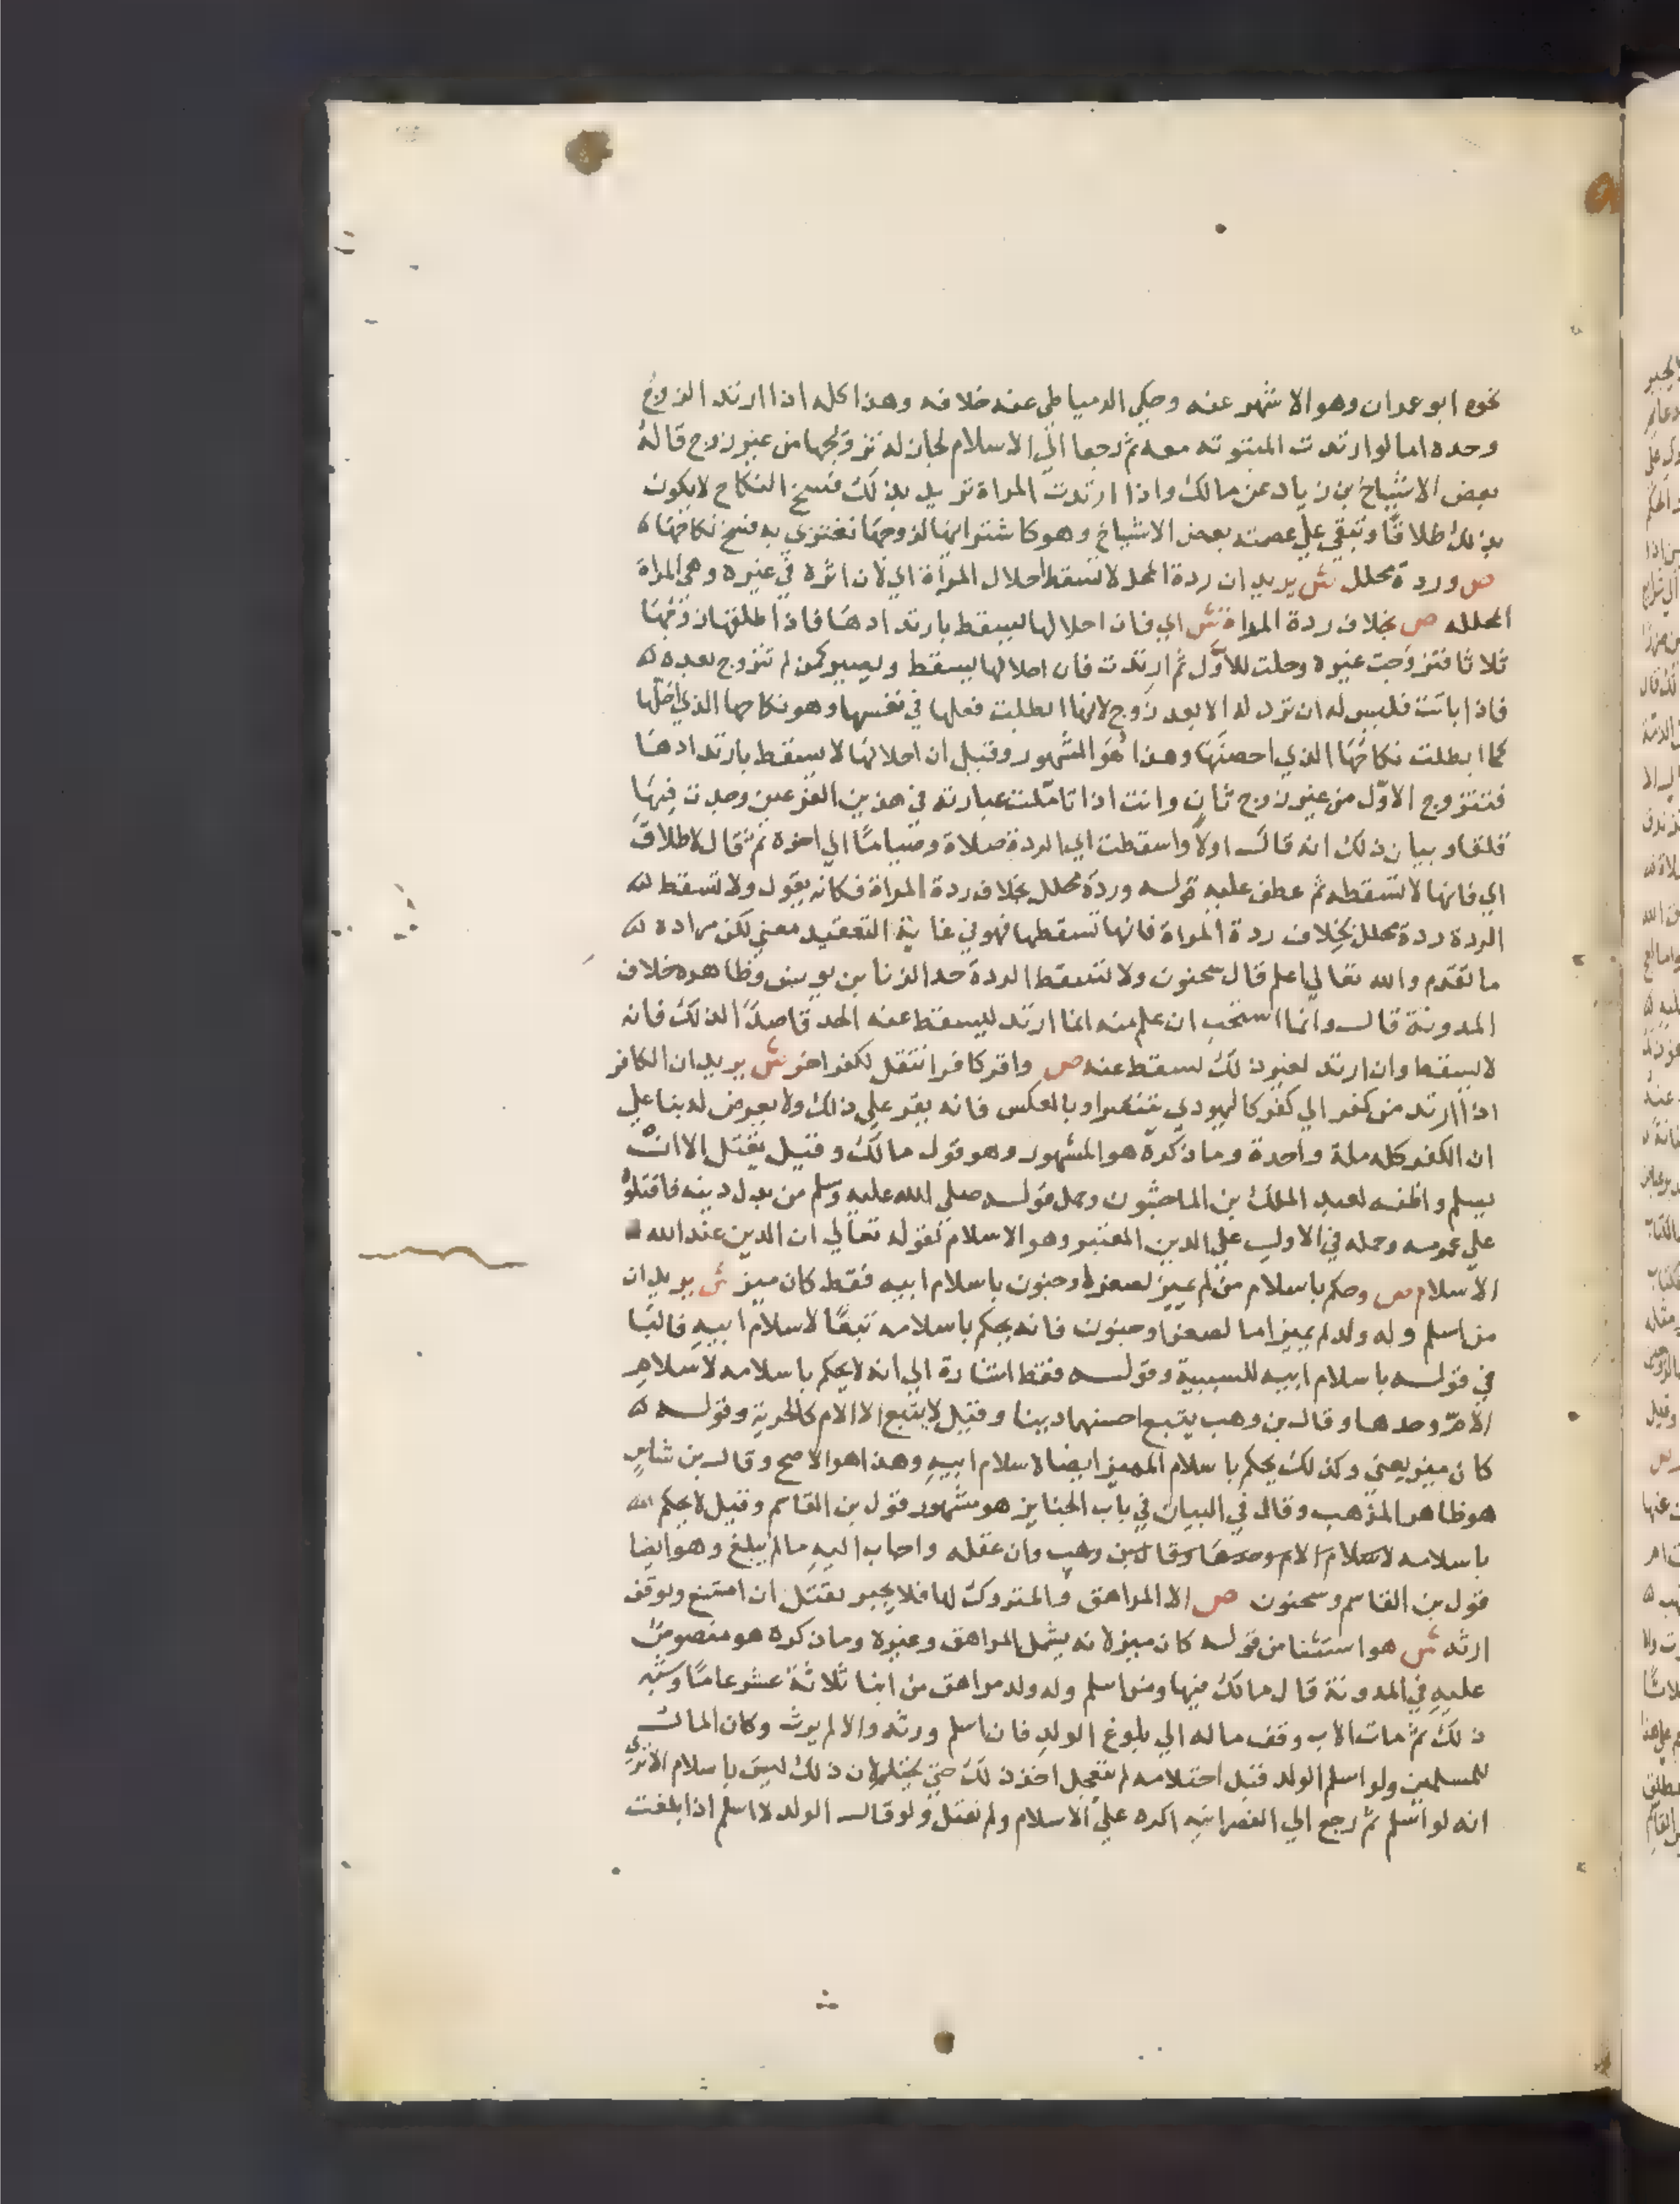 نحوه ابو عمران وهو الاشهر عنه وحكي الدمياطي عنه خلافه وهذا كله اذا ارتد الزوج
وحده اما لو ارتدت المبتوته معه ثم رجعا الي الاسلام لجاز له تزوجها من غير زوج قاله
بعض الاشياخ بن زياد عن مالك واذا ارتدت المراة تريد بذلك فسخ النكاح لا يكون
بذلك طلاقا وتبقي علي عصمته بعض الاشياخ وهو كاشترايها لزوجها تغتزي به فسخ نكاحها
ص وردة محلل ش يريد ان ردة المحلل لا تسقط احلال المراة اي لان اثره في غيره وهي المراة
المحلله ص بخلاف ردة المراة ش اي فان احلالها يسقط بارتدادها فاذا طلقها زوجها
ثلاثا فتزوجت غيره وحلت للاول ثم ارتدت فان احلالها يسقط ويصير كمن لم تتزوج بعده
فاذا بانت فليس له ان ترد له الا بعد زوج لانها ابطلت فعلها في نفسها وهو نكاحها الذي احلها
كما ابطلت نكاحها الذي احصنها وهذا هو المشهور وقيل ان احلالها لا يسقط بارتدادها
فتتزوج الاول من غير زوج ثان وانت اذا تاملت عبارته في هذين الفرعين وجدت فيها
قلقا وبيان ذلك انه قال اولا واسقطت اي الردة صلاة وصياما الي اخره ثم قال لا طلاق
اي فانها لا تسقطه ثم عطف عليه قوله وردة محلل بخلاف ردة المراة فكانه يقول ولا تسقط
الردة ردة محلل بخلاف ردة المراة فانها تسقطها فهو في غاية التعقيد معني لكن مراده
ما تقدم والله تعالي اعلم قال سحنون ولا تسقط الردة حد الزنا بن يونس وظاهره خلاف
المدونة قال وانما استحب ان علم منه انما ارتد ليسقط عنه الحد قاصدا لذلك فانه
لا يسقط وان ارتد لغير ذلك سقط عنه ص واقر كافر انتقل لكفر اخر ش يريد ان الكافر
اذا ارتد من كفر الي كفر كاليهودي يتنصر او بالعكس فانه يقر علي ذلك ولا يعرض له بنا علي
ان الكفر كله ملة واحدة وما ذكره هو المشهور وهو قول مالك وقيل يقتل الا ان
يسلم واظنه لعبد الملك بن الماجشون وحمل قوله صلي الله عليه وسلم من بدل دينه فاقتلوه
علي عمومه وحمله في الاول علي الدين المعتبر وهو الاسلام لقوله تعالي ان الدين عند الله
الاسلام ص وحكم باسلام من لم يميز لصغر او جنون باسلام ابيه فقط كان ميز ش يريد ان
من اسلم وله ولد لم يميز اما لصغر او جنون فانه يحكم باسلامه تبعا لاسلام ابيه فالبا
في قوله باسلام ابيه للسببية وقوله فقط اشارة الي انه لا يحكم باسلامه لاسلام
الام وحدها وقال بن وهب يتبع احسنهما دينا وقيل لا يتبع الا الام كالحرية وقوله
كان ميز يعني وكذلك يحكم باسلام المميز ايضا لاسلام ابيه وهذا هو الاصح وقال بن شاس
هو ظاهر المذهب وقال في البيان في باب الجنايز هو مشهور قول بن القاسم وقيل لا يحكم
باسلامه لاسلام الام وحدها وقال بن وهب وان عقله واجاب اليه ما لم يبلغ وهو ايضا
قول بن القاسم وسحنون ص الا المراهق والمتروك لها فلا يجبر بقتل ان امتنع ووقف
ارثه ش هو استثنا من قوله كان ميز لانه يشمل المراهق وغيره وما ذكره هو منصوص
عليه في المدونة قال مالك فيها ومن اسلم وله ولد مراهق من ابنا ثلاثة عشر عاما وشبه
ذلك ثم مات الاب وقف ماله الي بلوغ الولد فان اسلم ورثه والا لم يرث وكان المال
للمسلمين ولو اسلم الولد قبل احتلامه لم نعجل اخذ ذلك حتي يحتلم لان ذلك ليس باسلام الا تري
انه لو اسلم ثم رجع الي النصرانيه اكره علي الاسلام ولم نقتل ولو قال الولد لا اسلم اذا بلغت